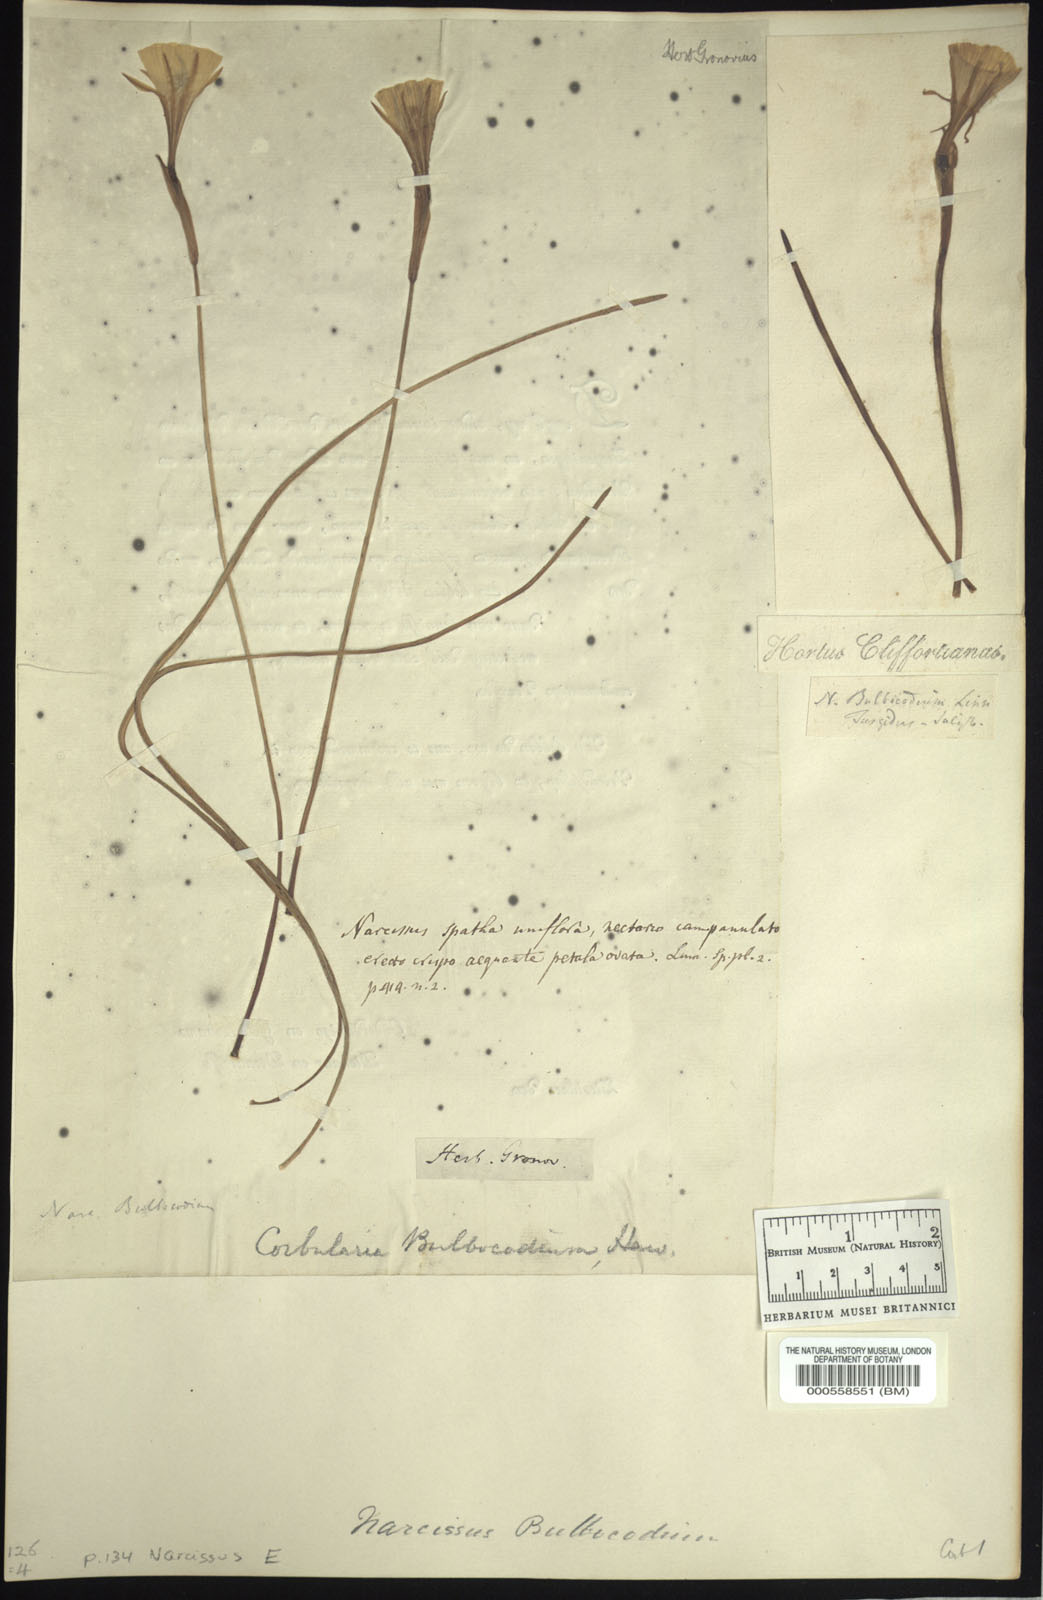 Herb Gronovius
Hortus Cliffortianus.
N. Bulbocodium Linn
Turgidus - Salisb.
Narcissus spatha uniflora, nectario campanulato
erecto crispo aequante petala ovata. Linn. Sp. pl. 2.
p. 414. n. 2.
Herb. Gronov.
Narc. Bulbocodium
Corbularia Bulbocodium, Haw.
1 2
BRITISH MUSEUM (NATURAL HISTORY)
1 2 3 4 5
HERBARIUM MUSEI BRITANNICI
THE NATURAL HISTORY MUSEUM, LONDON
DEPARTMENT OF BOTANY
000558551 (BM)
Narcissus Bulbocodium
126
:4
p.134 Narcissus E